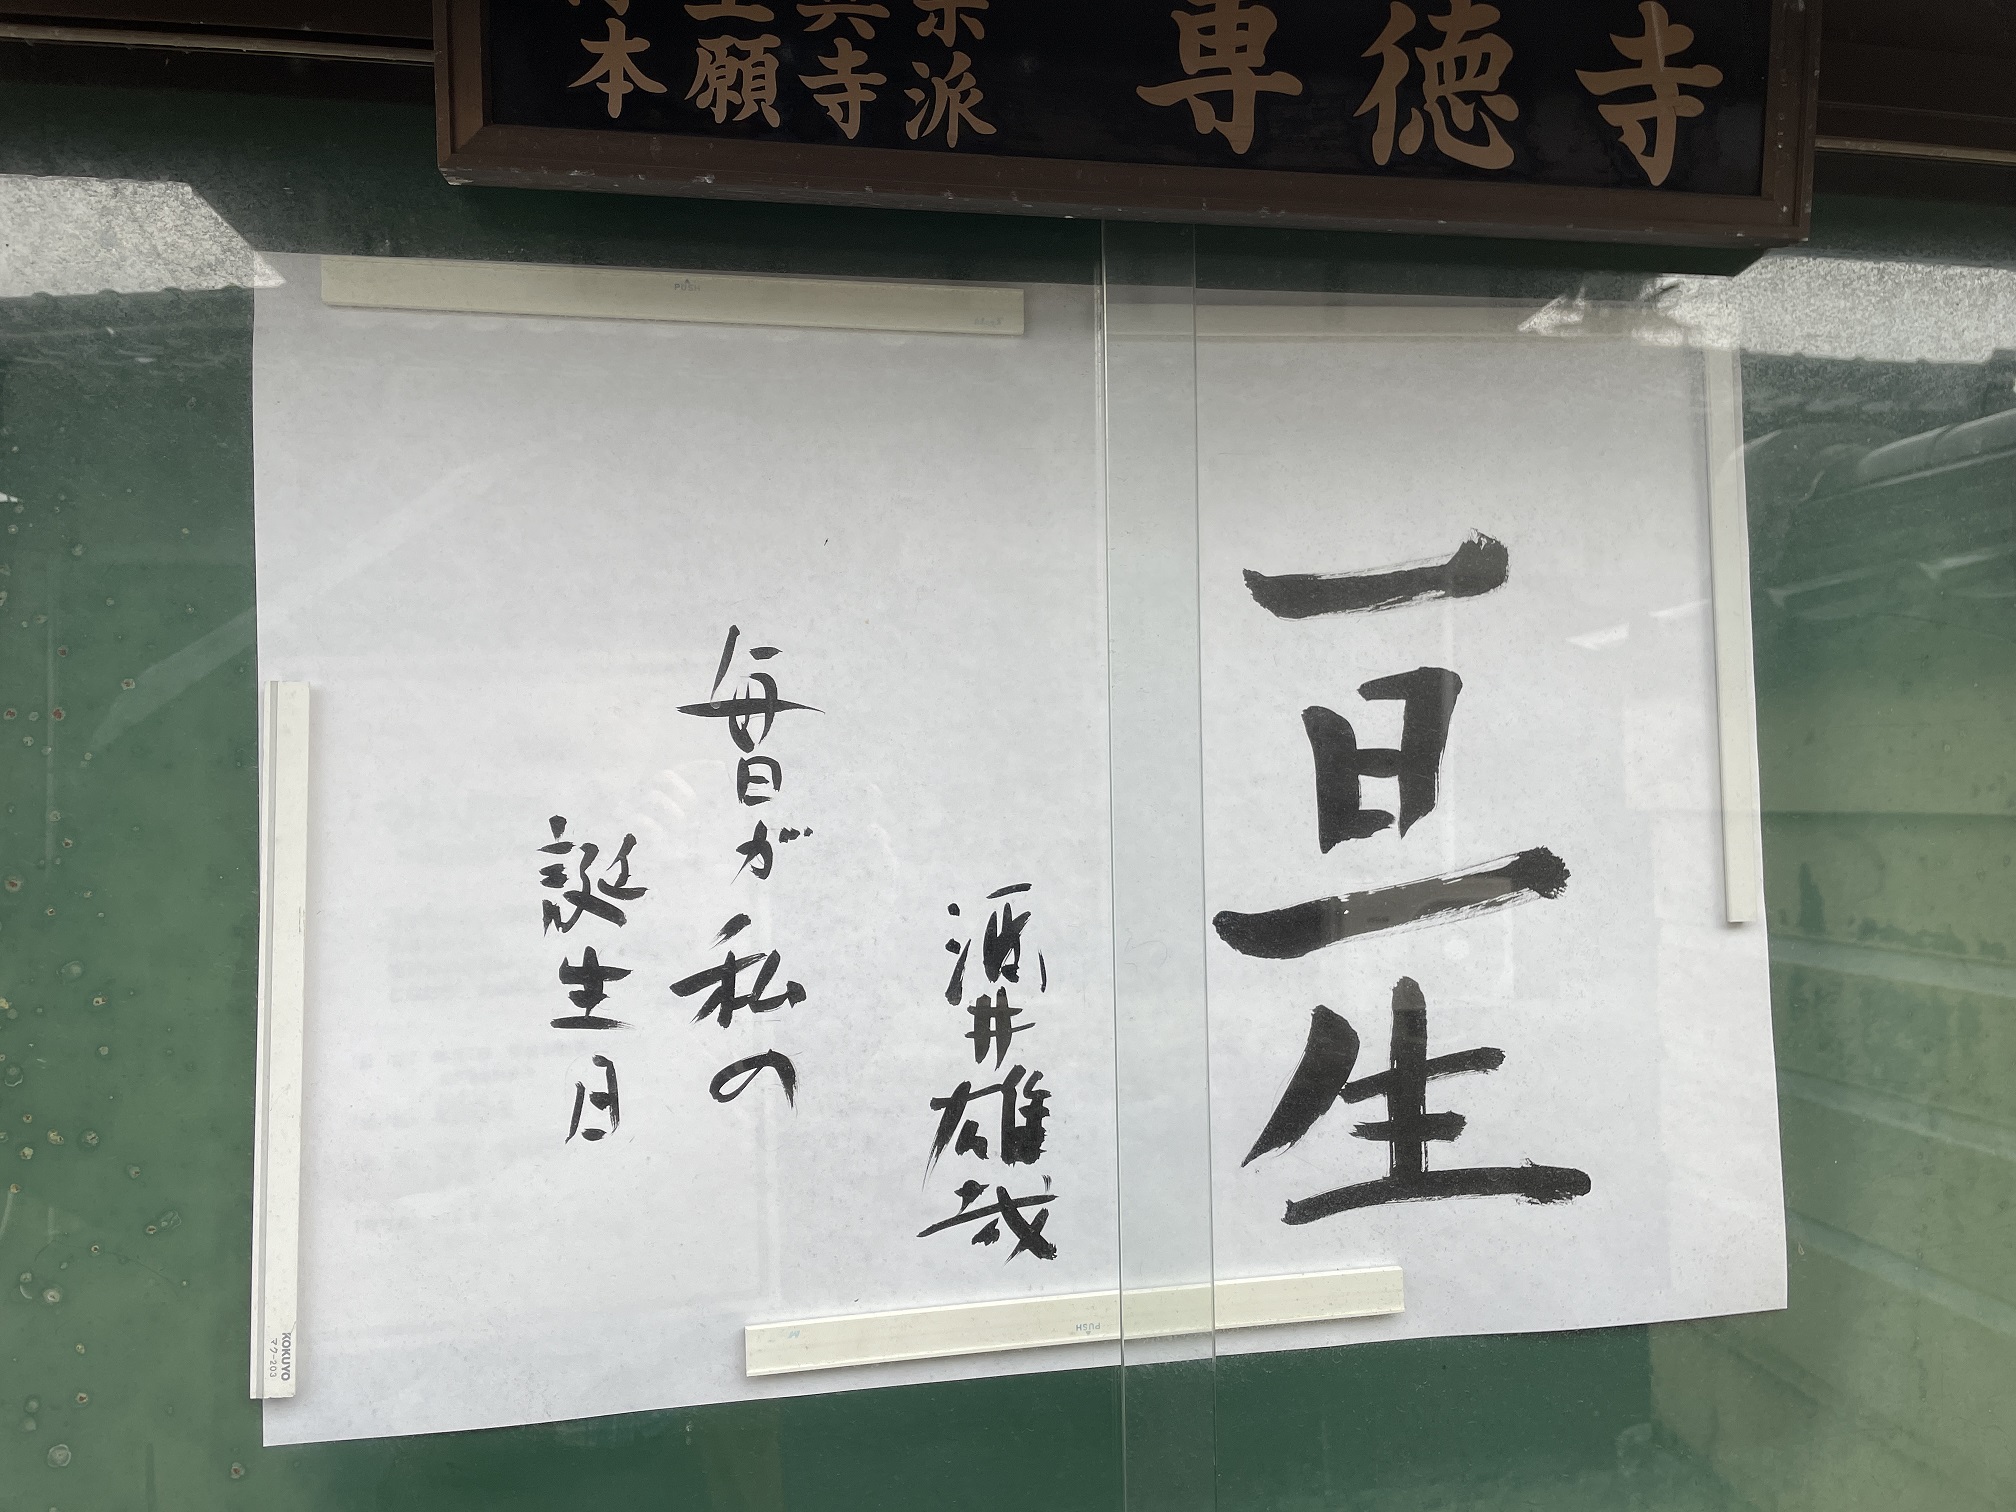 本願寺派
専徳寺
一日一生
酒井雄哉
毎日が私の
誕生日
PUSH
PUSH
KOKUYO
マク-203